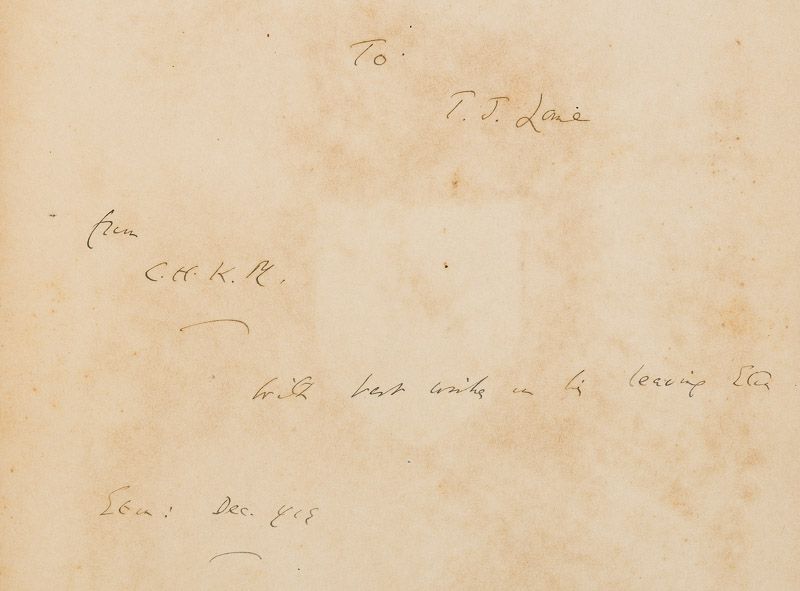 To
T. J.
from
C. H. K. M.
with best wishes on his leaving Eton
Eton: Dec.